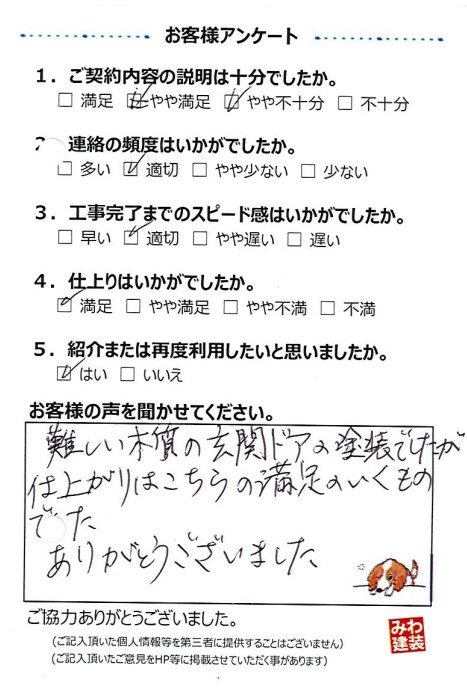 お客様アンケート
1．ご契約内容の説明は十分でしたか。
□ 満足 ☑ やや満足 ☑ やや不十分 □ 不十分
2 連絡の頻度はいかがでしたか。
□ 多い ☑ 適切 □ やや少ない □ 少ない
3．工事完了までのスピード感はいかがでしたか。
□ 早い ☑ 適切 □ やや遅い □ 遅い
4．仕上りはいかがでしたか。
☑ 満足 □ やや満足 □ やや不満 □ 不満
5．紹介または再度利用したいと思いましたか。
☑ はい □ いいえ
お客様の声を聞かせてください。
難しい木質の玄関ドアの塗装でしたが
仕上がりはこちらの満足のいくもの
でした
ありがとうございました
ご協力ありがとうございました。
(ご記入頂いた個人情報等を第三者に提供することはございません)
(ご記入頂いたご意見をHP等に掲載させていただく事があります)
みわ
建装